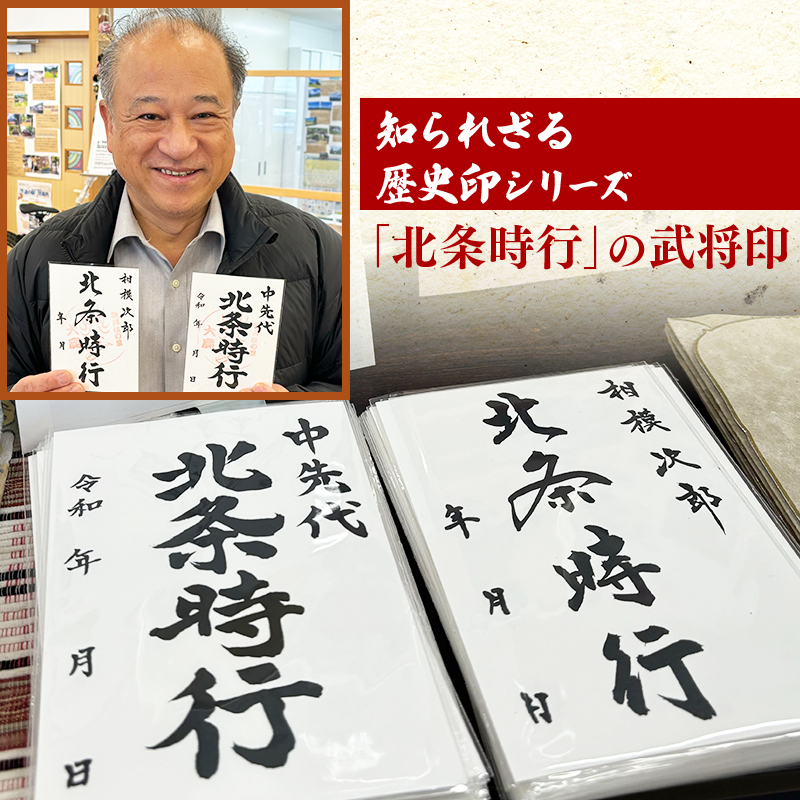 知られざる
歴史印シリーズ
「北条時行」の武将印
相模次郎
北条時行
年 月
中先代
北条時行
令和 年 月 日
中先代
北条時行
令和 年 月 日
相模次郎
北条時行
年 月 日